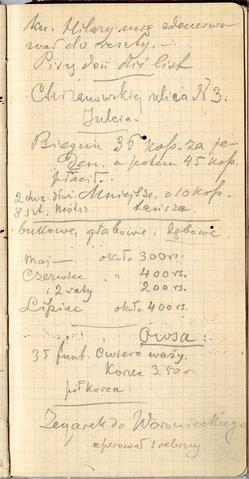 kn. Hilary mię zdenerwo-
wał do reszty. —
Piszę doń dziś list
Chrzanowskiej ulica № 3.
Julcia.
Biegun 35 kop. za je-
den. a potem 45 kop.
płacił.
2 dwie Mniejsze, o 10 kop
8 szt. krótsz. tańsze
bukowe, grabowe, dębowe
maj — około 300 rs.
Czerwiec " 400 rs.
i 2 raty 200 rs.
Lipiec około 400 rs.
Owsa:
35 funt. Ćwierć waży.
Korzec 3.50
pół korca
Zegarek do Woronieckiego
reperował srebrny